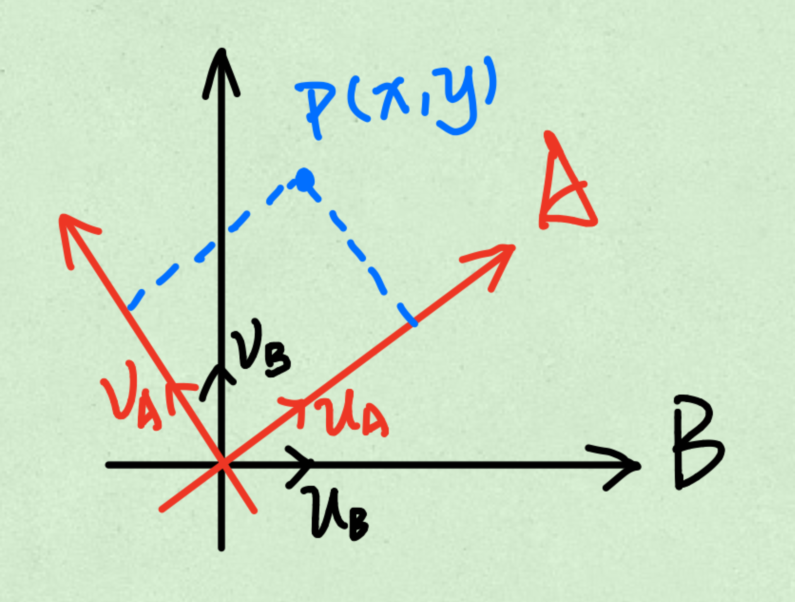 P(x,y)
A
V_B
V_A
u_A
B
u_B